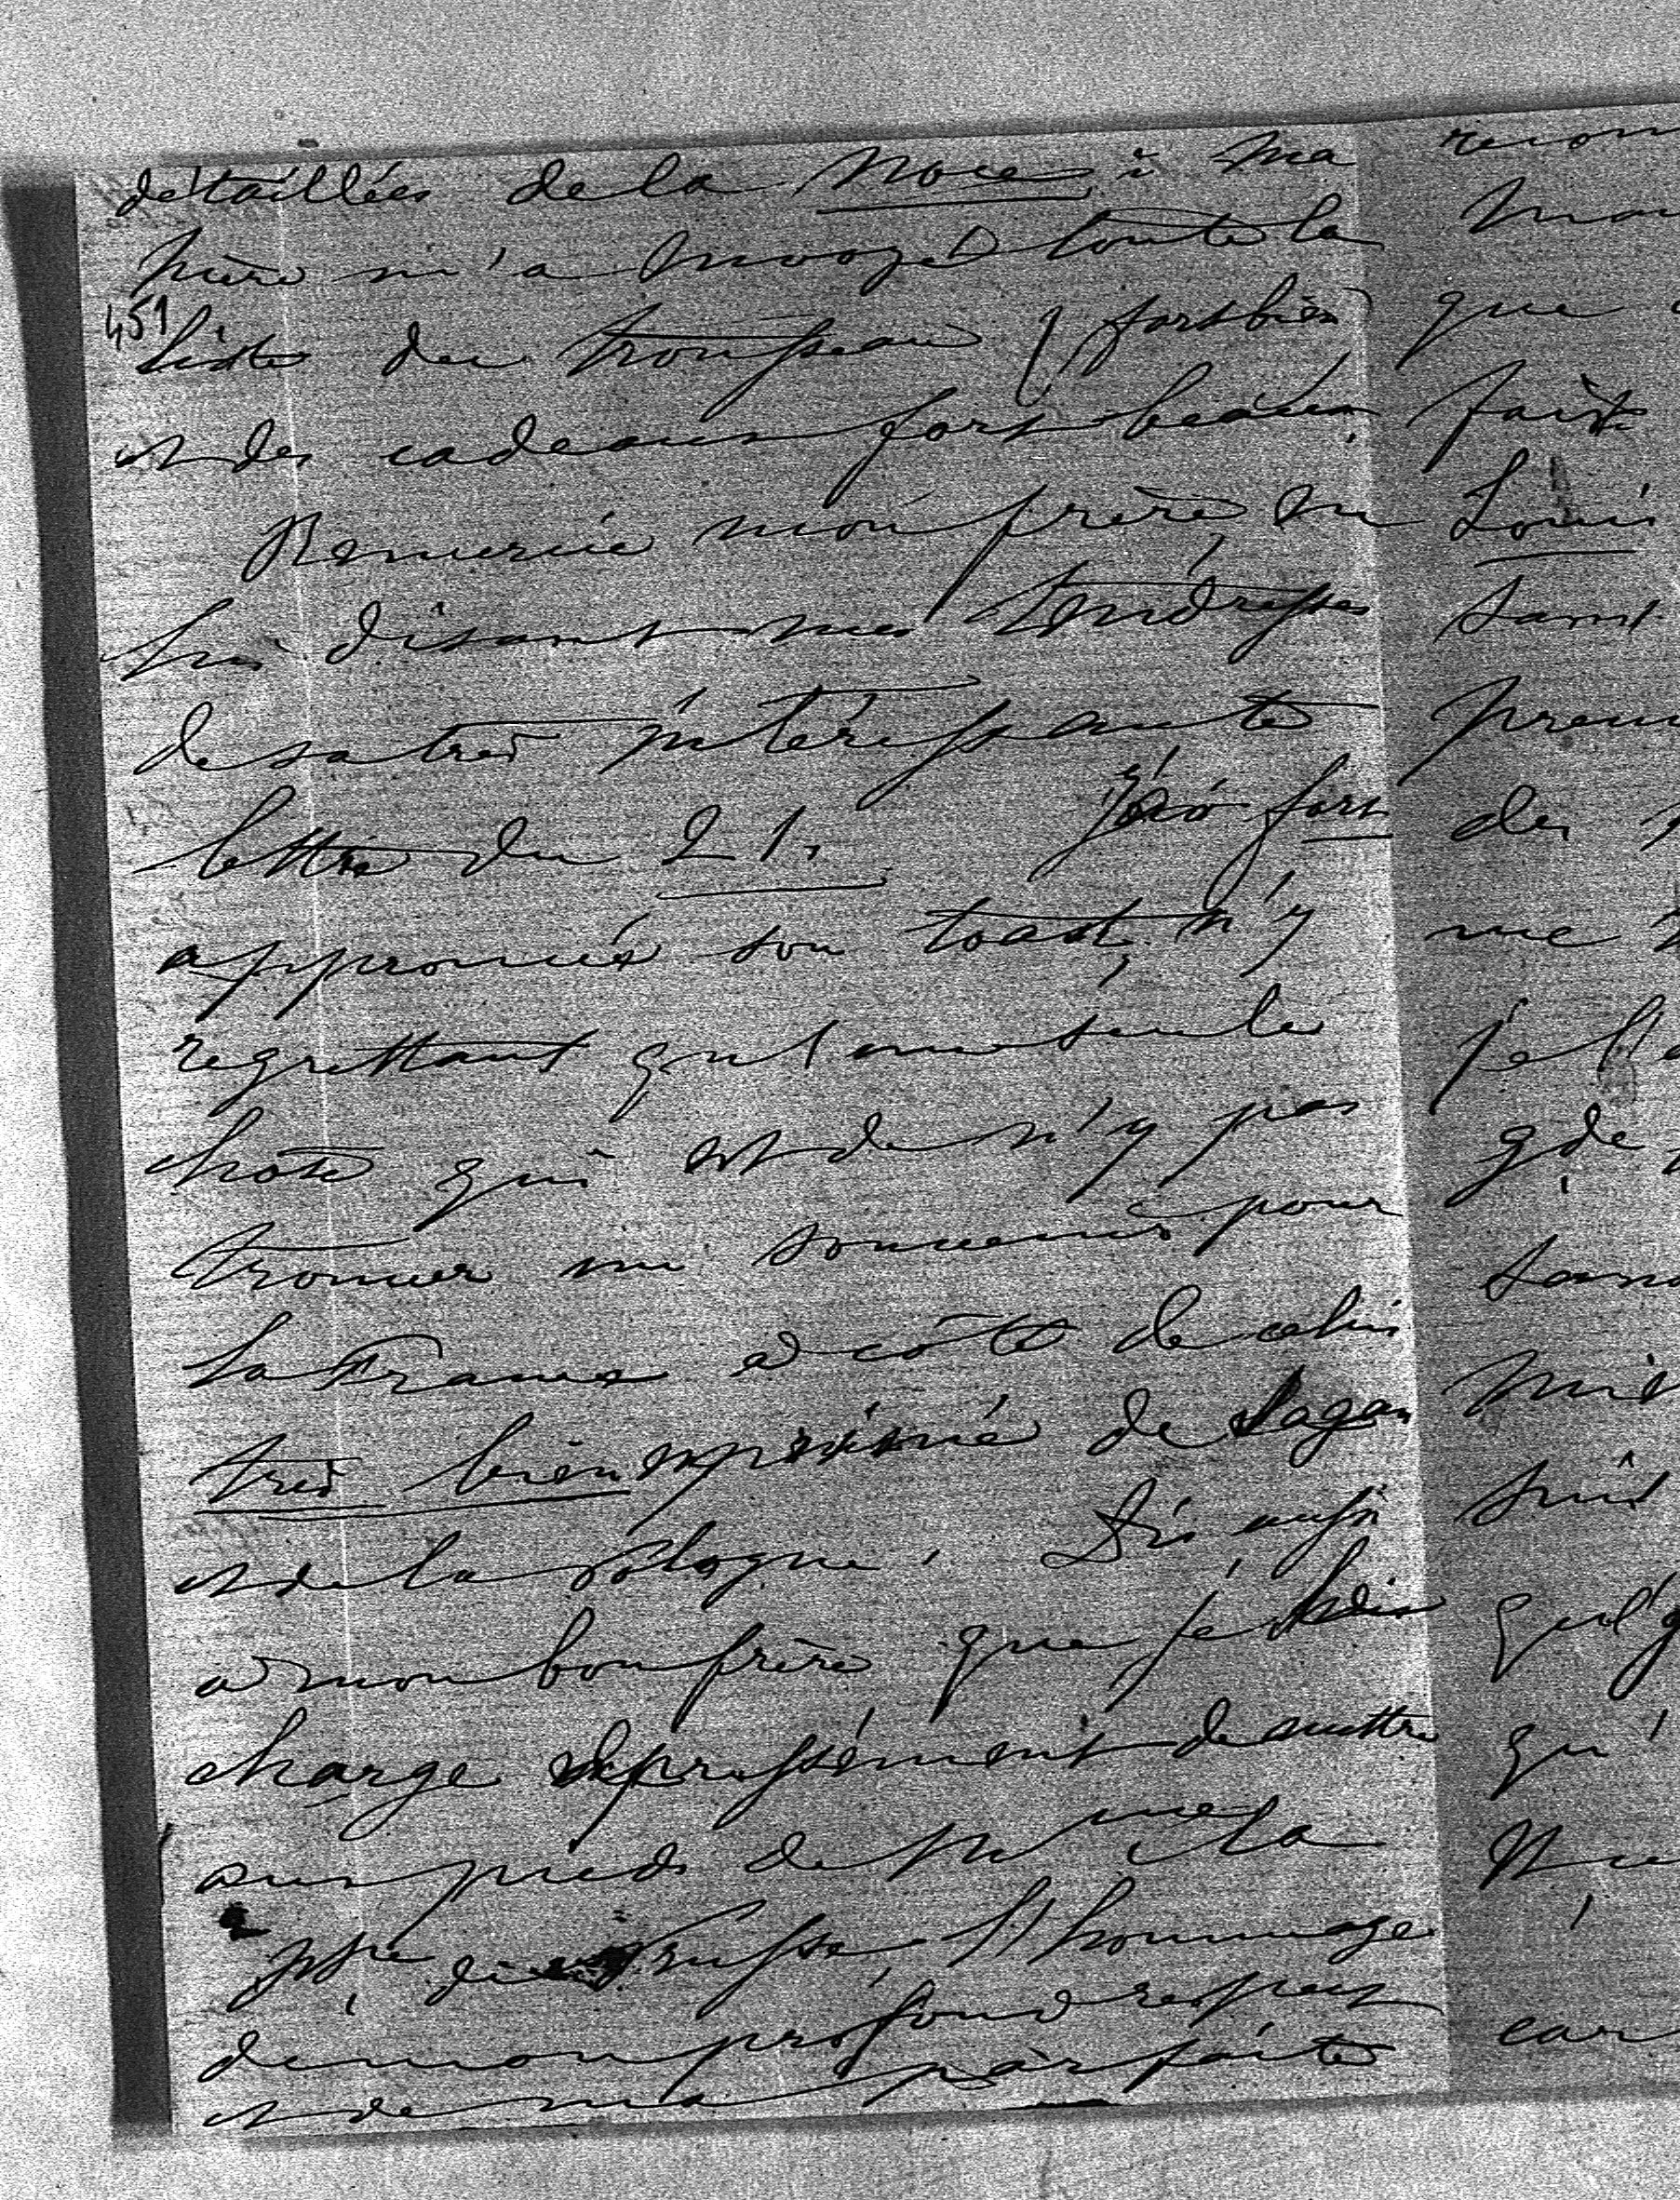 détaillées de la noce; ma
mère m'a envoyé toute la
451
liste du trousseau (fort bien)
et des cadeaux fort beaux.
Remercie mon frère en
lui disant mes tendresses
de sa très intéressante
lettre du 21. J'ai fort
approuvé son toast, n'y
regrettant qu'une seule
chose qui est de n'y pas
trouver un souvenir pour
la France à côté de celui
très bien exprimé de Sagan
et de la Pologne. Dis aussi
à mon bon frère que je le
charge expressément de mettre
aux pieds de Mme la
Psse de Prusse l'hommage
de mon profond respect
et de ma parfaite
que
Louis
des
me
gde
qu'
car